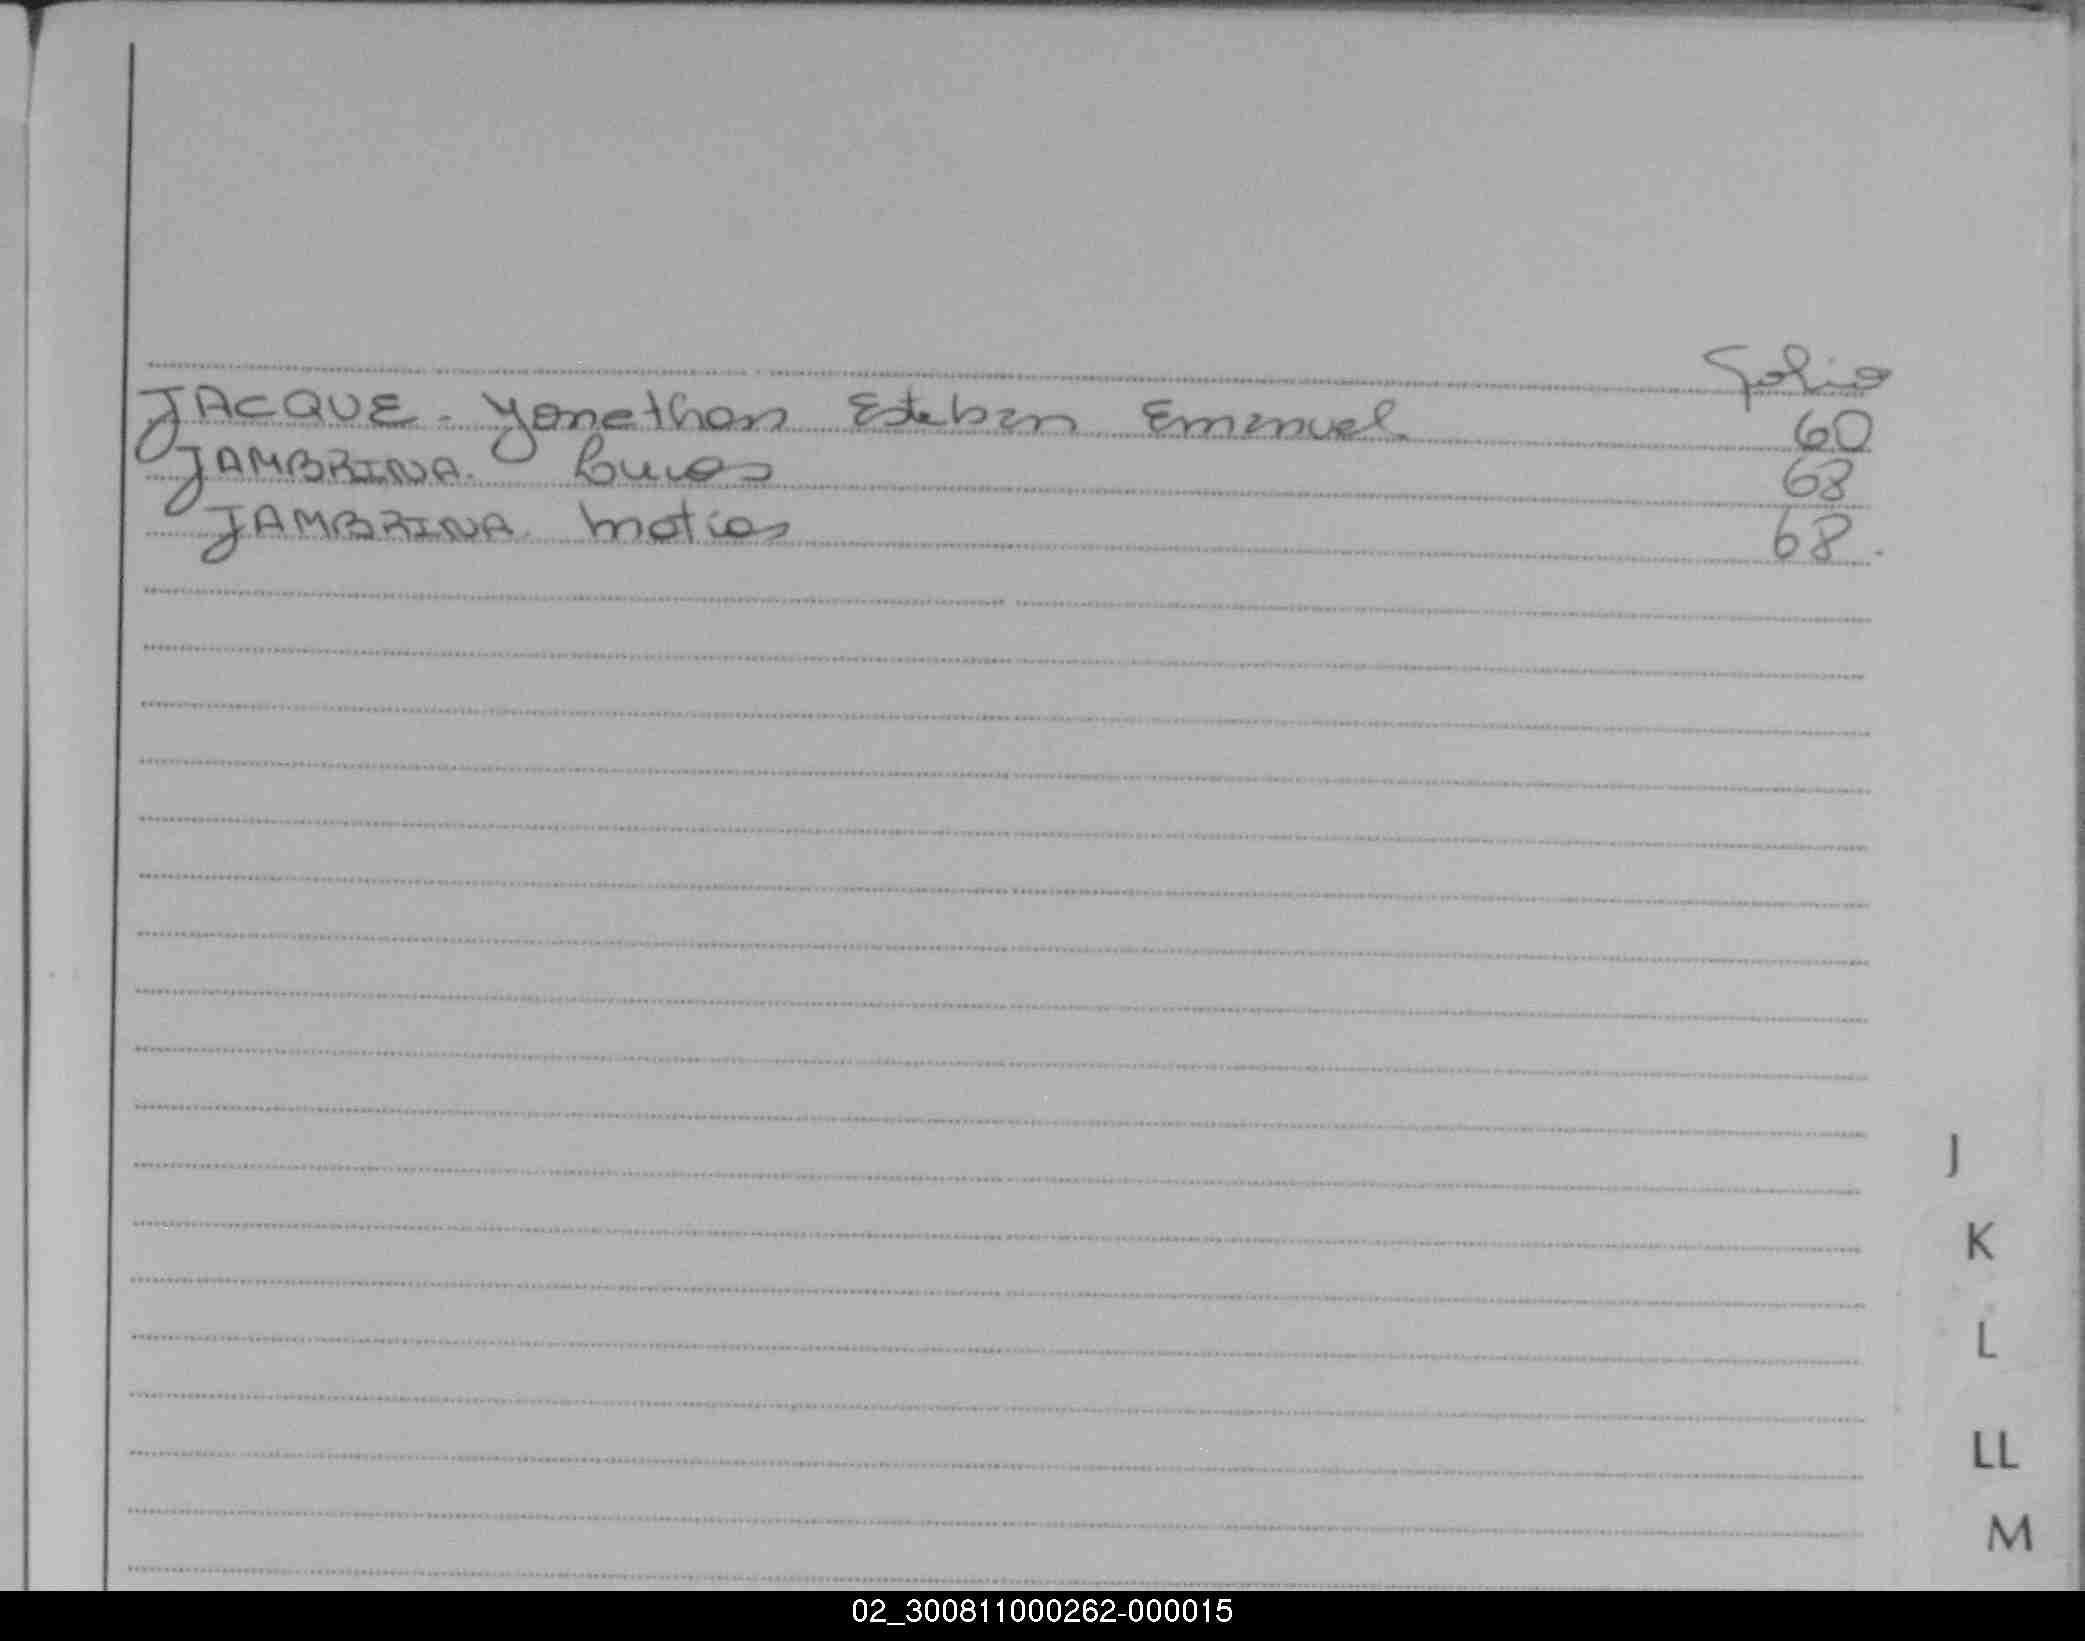 Folio
JACQUE - Yonathan Esteban Emanuel. 60
JAMBRINA. Lucas 68
JAMBRINA. Matias 68.
J
K
L
LL
M
02_300811000262-000015